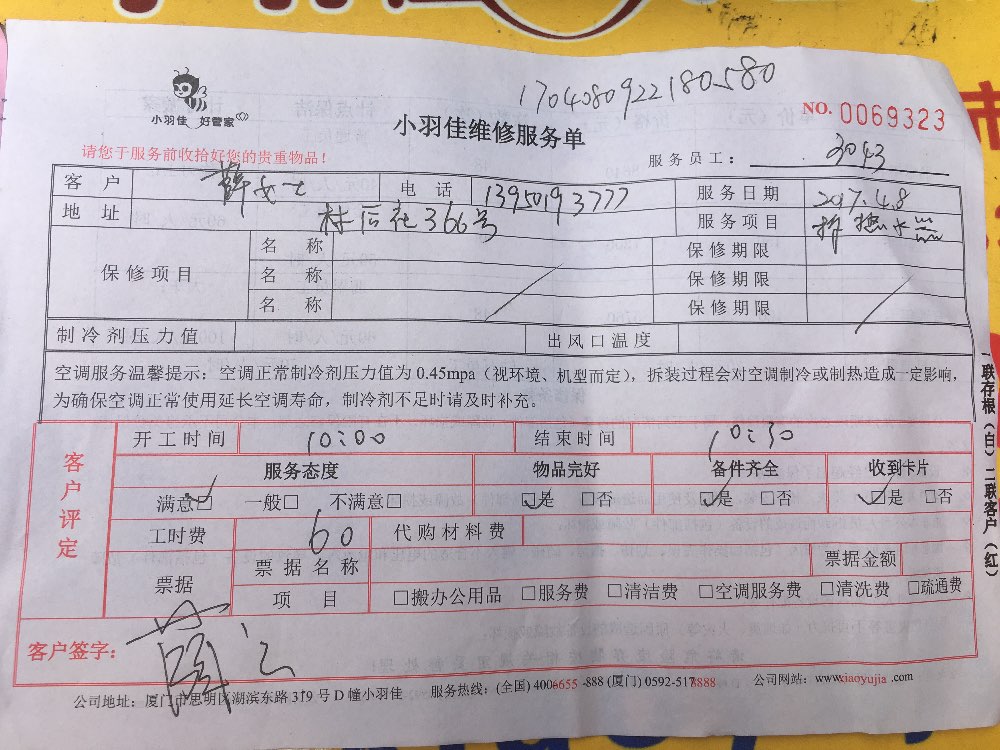 1704080922180580
小羽佳 好管家
小羽佳维修服务单
NO. 0069323
请您于服务前收拾好您的贵重物品！
服务员工： 3043
客户 薛女士 电话 13950193777 服务日期 2017.4.8
地址 村后社366号 服务项目 拆热水器
保修项目 名称 保修期限
名称 保修期限
名称 保修期限
制冷剂压力值 出风口温度
空调服务温馨提示：空调正常制冷剂压力值为 0.45mpa（视环境、机型而定），拆装过程会对空调制冷或制热造成一定影响，
为确保空调正常使用延长空调寿命，制冷剂不足时请及时补充。
客户评定
开工时间 10:00 结束时间 10:30
服务态度 物品完好 备件齐全 收到卡片
满意☑ 一般□ 不满意□ ☑是 □否 ☑是 □否 ☑是 □否
工时费 60 代购材料费
票据 票据名称 票据金额
项目 □搬办公用品 □服务费 □清洁费 □空调服务费 □清洗费 □疏通费
客户签字：
公司地址：厦门市思明区湖滨东路 319 号 D 幢小羽佳 服务热线：(全国) 4006655 -888 (厦门) 0592-5178888 公司网站：www.xiaoyujia .com
一联存根（白）二联客户（红）